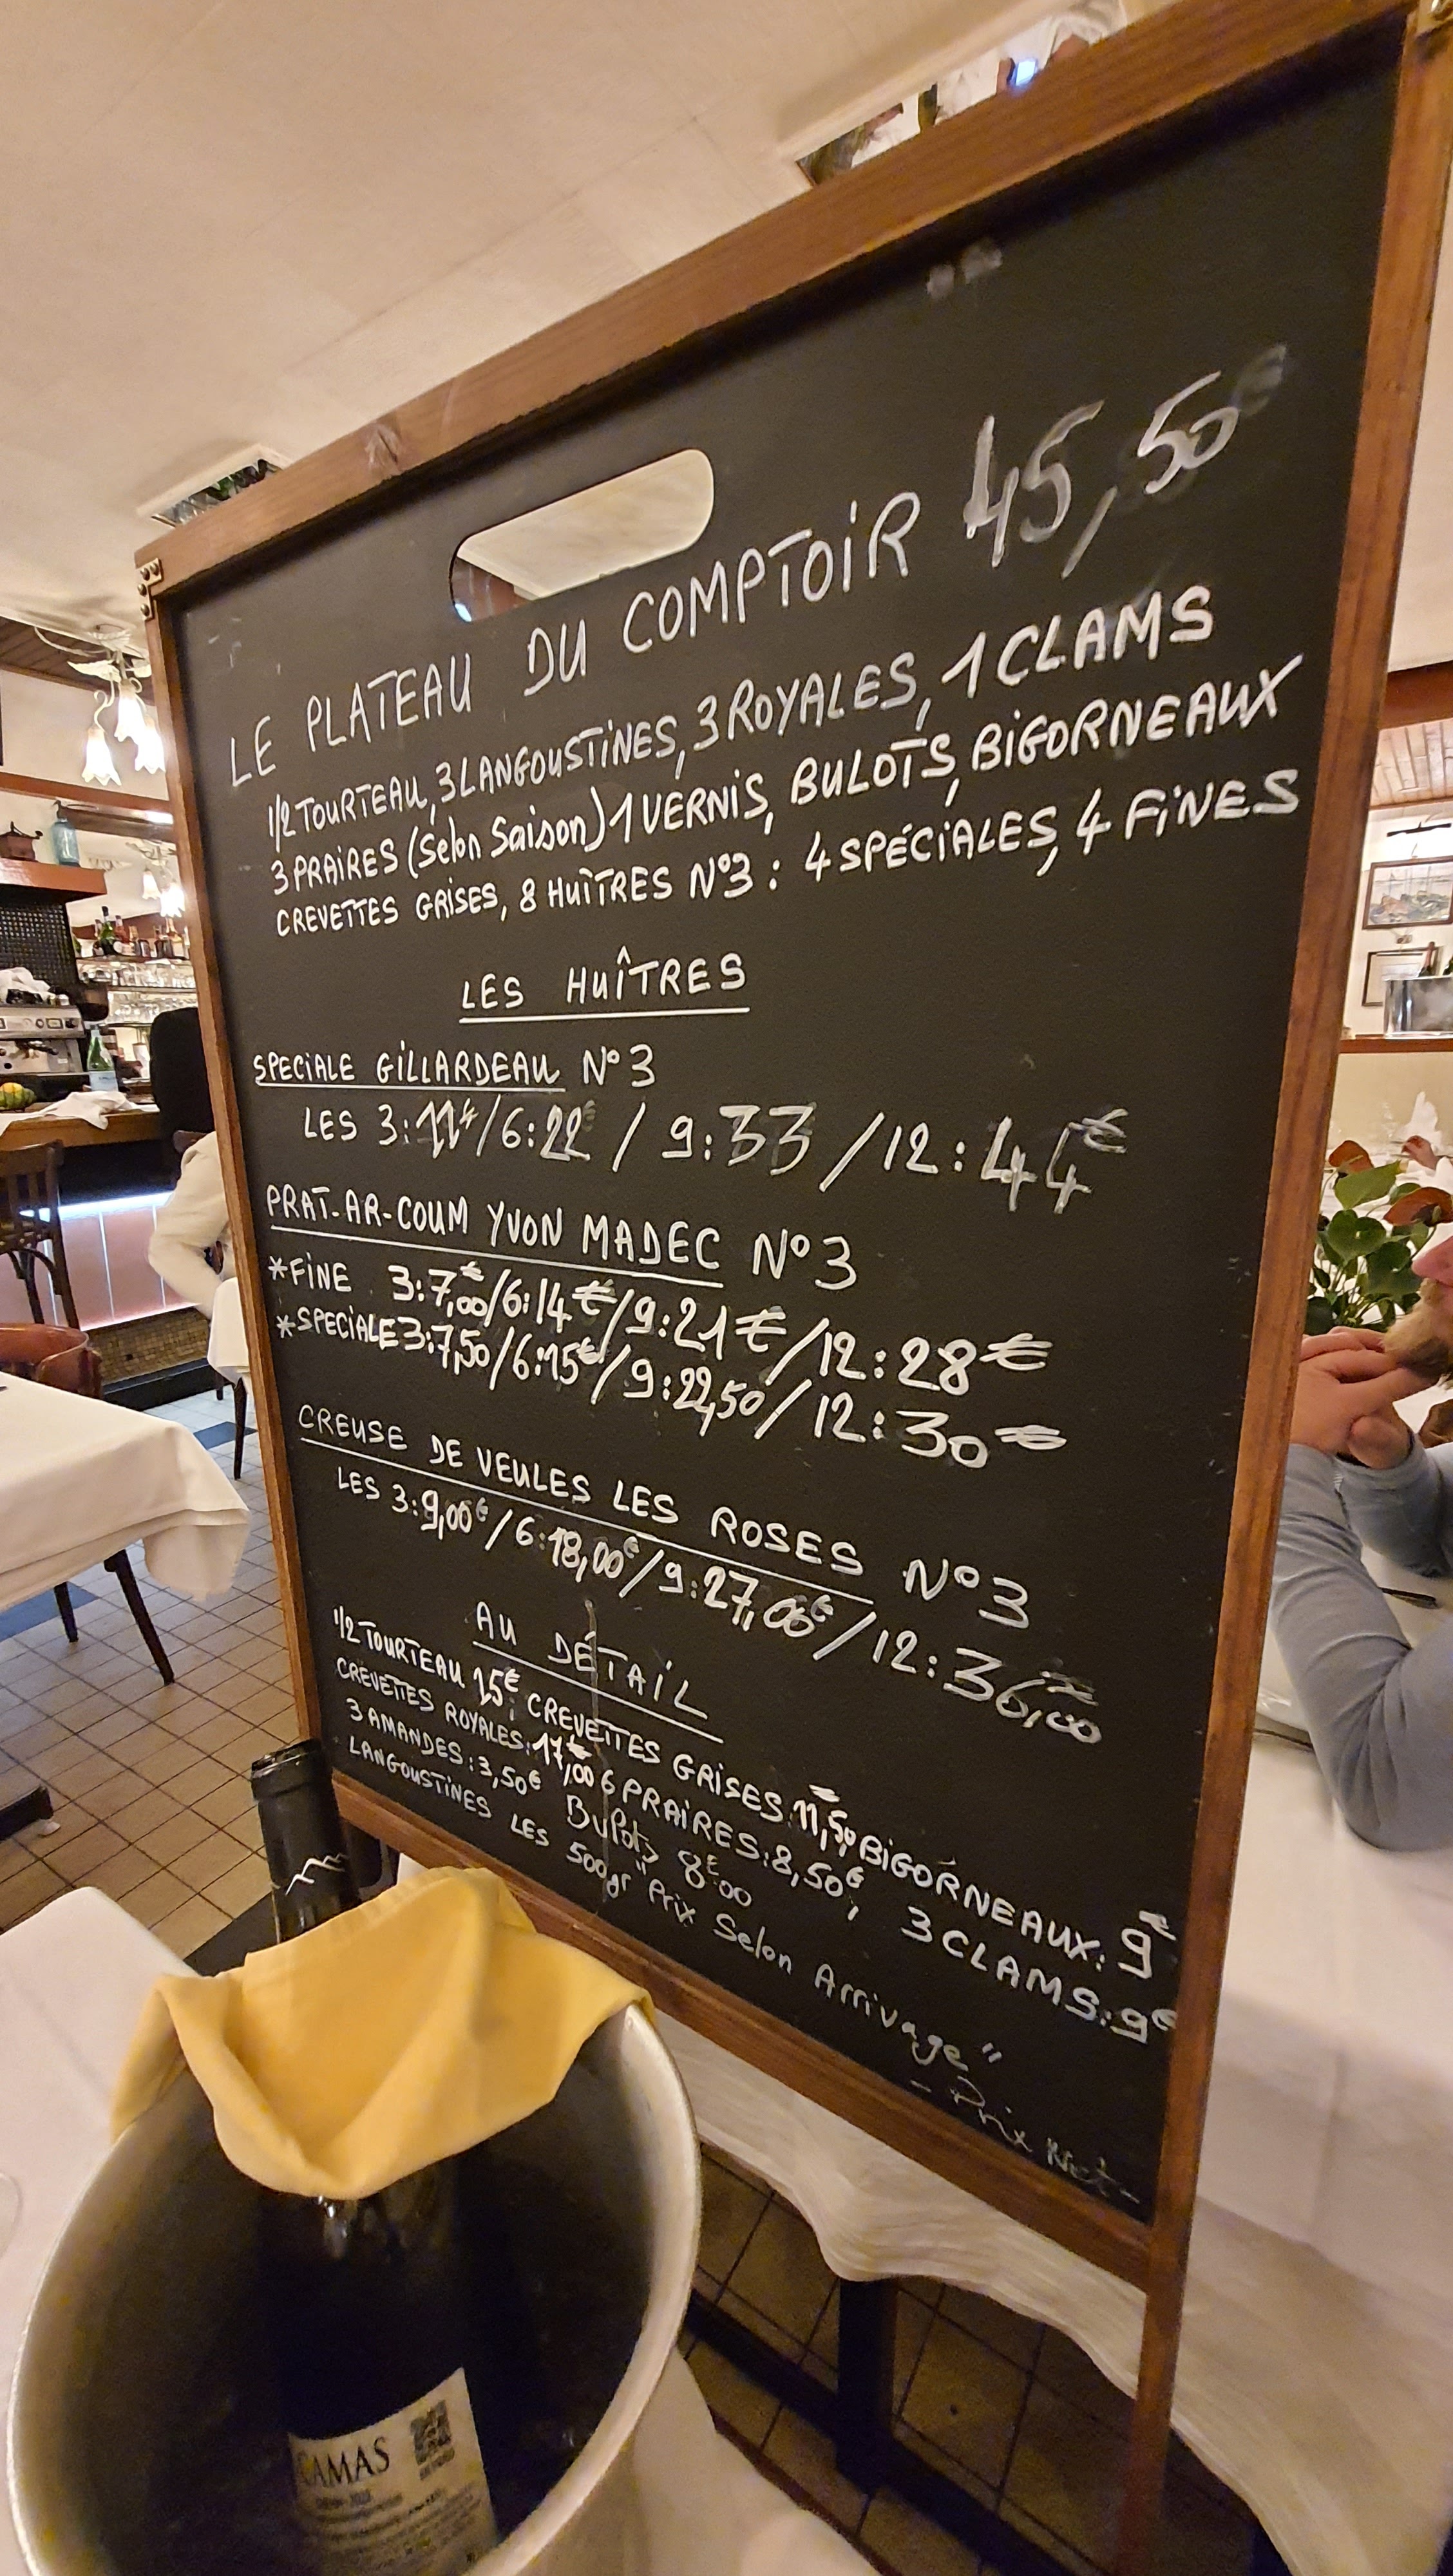 LE PLATEAU DU COMPTOIR 45,50€
1/2 TOURTEAU, 3 LANGOUSTINES, 3 ROYALES, 1 CLAMS
3 PRAIRES (Selon Saison) 1 VERNIS, BULOTS, BIGORNEAUX
CREVETTES GRISES, 8 HUÎTRES N°3 : 4 SPÉCIALES, 4 FINES
LES HUÎTRES
SPECIALE GILLARDEAU N°3
LES 3:11€/6:22€ / 9:33 /12:44€
PRAT-AR-COUM YVON MADEC N°3
*FINE 3:7,00€/6:14€/9:21€/12:28€
*SPECIALE 3:7,50/6:15€/9:22,50/12:30€
CREUSE DE VEULES LES ROSES N°3
LES 3:9,00€/6:18,00€/9:27,00€/12:36,00€
AU DÉTAIL
1/2 TOURTEAU 15€; CREVETTES GRISES: 11,50€ BIGORNEAUX: 9€
CREVETTES ROYALES: 17,00€ 6 PRAIRES: 8,50€, 3 CLAMS: 9€
3 AMANDES: 3,50€ Bulots 8€00
LANGOUSTINES LES 500gr "Prix Selon Arrivage"
- Prix Net -
CAMAS